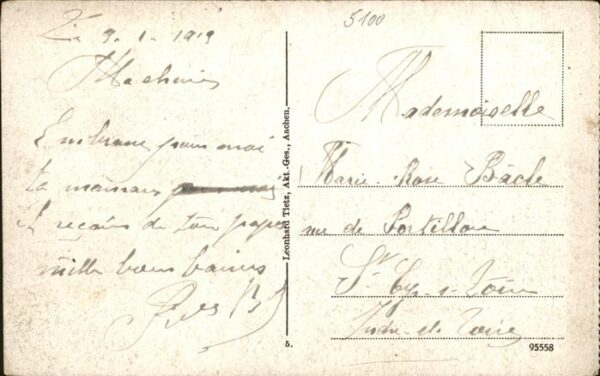 9-1-1919
Embrasse pour moi
ta maman
et reçois de ton papa
mille bons baisers
5100
Mademoiselle
Marie-Rose Bâcle
rue de Portillon
St Cyr-s-Loire
Indre-et-Loire
Leonhard Tietz, Akt.-Ges., Aachen.
5.
95558